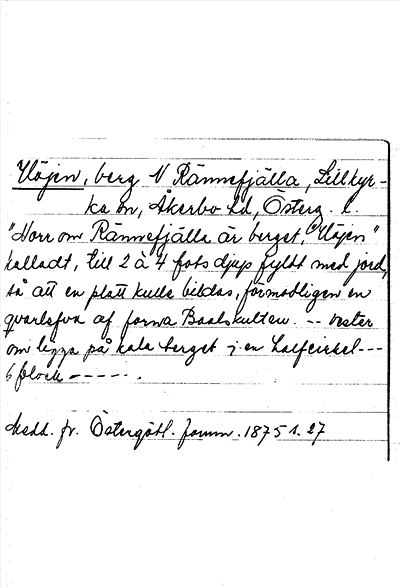 Vlöjen, berg N Rännefjälla, Lillkyr-
ka sn, Åkerbo hd, Österg. l.
"Norr om Rännefjälla är berget, "Vlöjen"
kalladt, till 2 à 4 fots djup fyldt med jord,
så att en platt kulle bildas, förmodligen en
qvarlefva af forna Baalskulten. -- Vester
om ligga på kala berget i en halfcirkel ---
6 block ------.
Medd. fr. Östergötl. fornm. 1875 s. 27